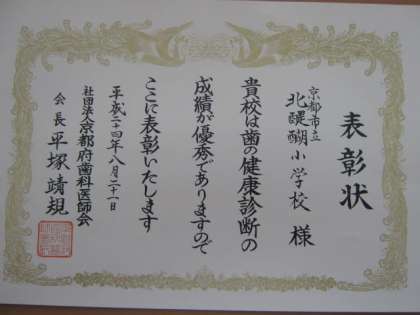 表彰状
京都市立
北醍醐小学校 様
貴校は歯の健康診断の
成績が優秀でありますので
ここに表彰いたします
平成二十四年八月二十一日
社団法人京都府歯科医師会
会長 平塚靖規